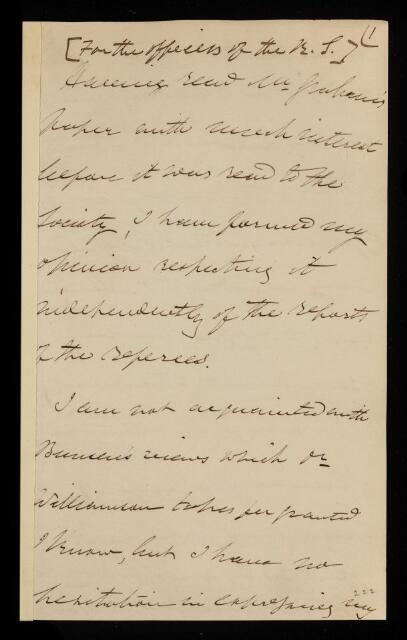 [For the officers of the R. S.] (1
Having read Mr Graham's
paper with much interest
before it was read to the
Society, I have formed my
opinion respecting it
independently of the reports
of the referees.
I am not acquainted with
Bunsen's views which Dr
Williamson takes for granted
I know, but I have no
hesitation in expressing my
222